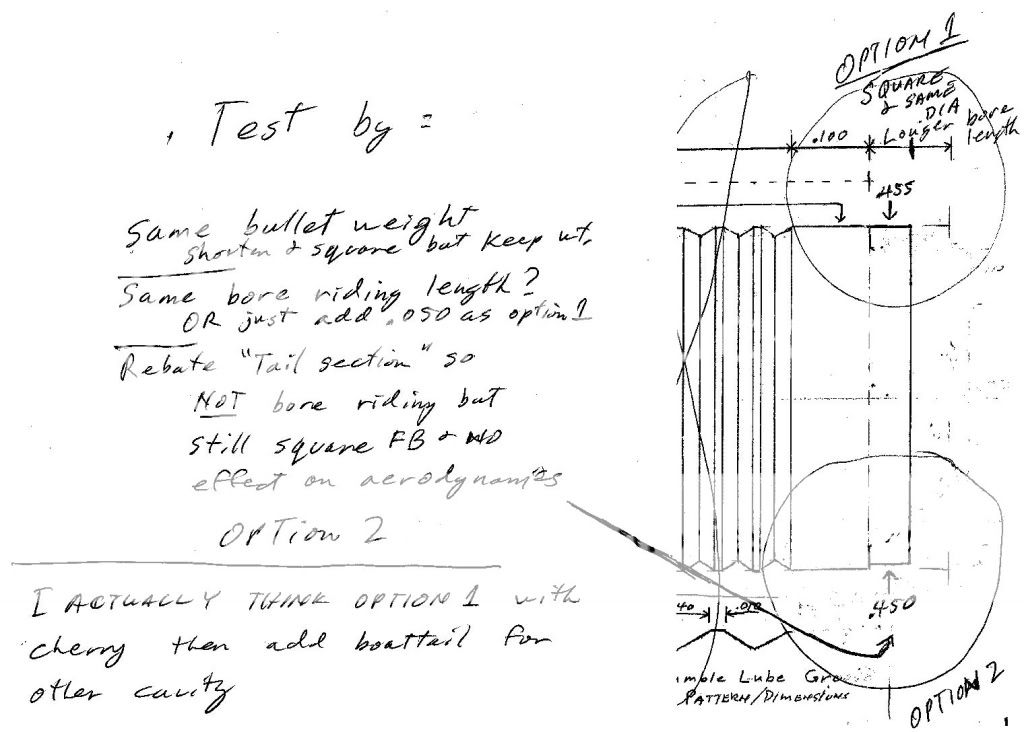 Test by =
Same bullet weight
shorten & square but keep wt.
Same bore riding length?
OR just add .050 as option 1
Rebate "Tail section" so
NOT bore riding but
still square FB & NO
effect on aerodynamics
OPTION 2
I ACTUALLY THINK OPTION 1 with
cherry then add boattail for
other cavity
OPTION 1
SQUARE
& SAME
DIA
Longer bore
length
.100
.455
.450
40
.010
mple Lube Gro
PATTERN/DIMENSIONS
OPTION 2